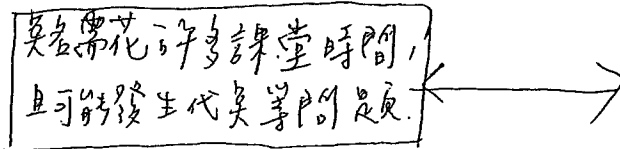 奌名需花許多課堂時間,
且可能發生代奌等問題.